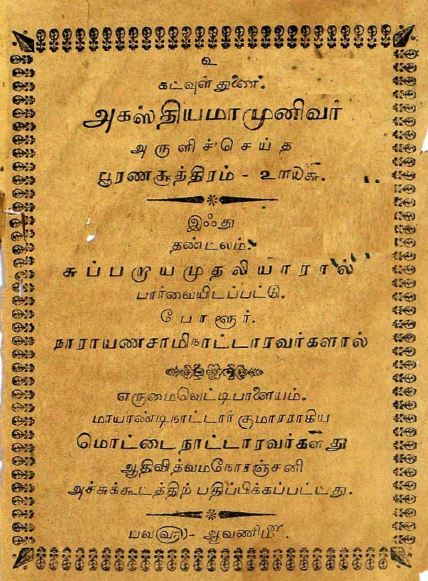 உ
கடவுள் துணை.
அகஸ்தியமாமுனிவர்
அருளிச்செய்த
பூரணசூத்திரம் - உா௰சு.
இஃது
தண்டலம்.
சுப்பராயமுதலியாரால்
பார்வையிடப்பட்டு.
போளூர்.
நாராயணசாமிநாட்டாரவர்களால்
எருமைவெட்டிபாளையம்.
மாயாண்டிநாட்டார் குமாரராகிய
மொட்டைநாட்டாரவர்களது
ஆதிவித்வமநோரஞ்சனி
அச்சுக்கூடத்திற் பதிப்பிக்கப்பட்டது.
பவ௵ - ஆவணி௴.